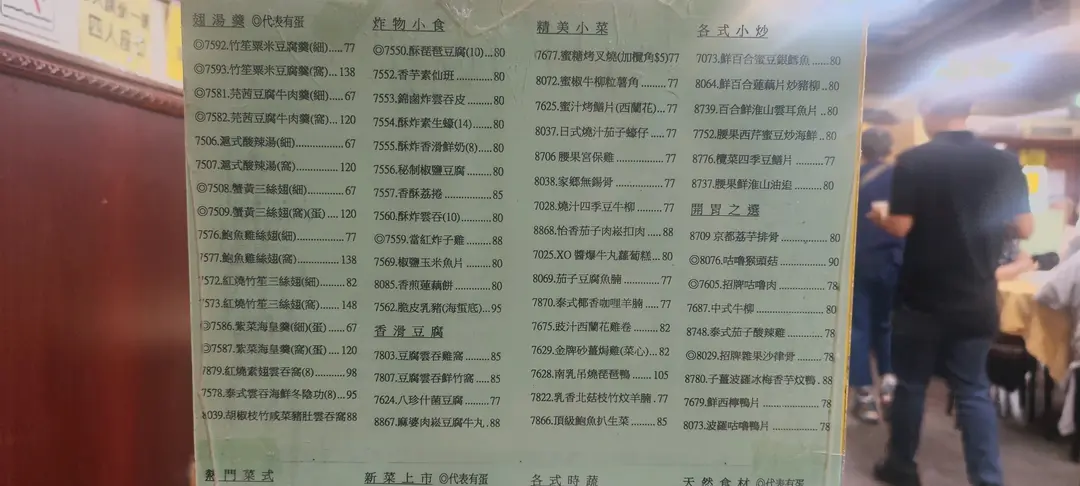 四人座
翅湯羹 ◎代表有蛋
◎7592.竹笙粟米豆腐羹(細).....77
◎7593.竹笙粟米豆腐羹(窩)....138
◎7581.芫茜豆腐牛肉羹(細).....67
◎7582.芫茜豆腐牛肉羹(窩)....120
7506.滬式酸辣湯(細)................67
7507.滬式酸辣湯(窩)..............120
◎7508.蟹黃三絲翅(細)..............67
◎7509.蟹黃三絲翅(窩)(蛋)....120
7576.鮑魚雞絲翅(細)................77
7577.鮑魚雞絲翅(窩)..............138
7572.紅燒竹笙三絲翅(細)........82
7573.紅燒竹笙三絲翅(窩)......148
◎7586.紫菜海皇羹(細)(蛋)......67
◎7587.紫菜海皇羹(窩)(蛋)....120
7879.紅燒素翅雲吞窩(8)..........98
7578.泰式雲吞海鮮冬陰功(8)...95
8039.胡椒枝竹咸菜豬肚雲吞窩88
熱門菜式
炸物小食
◎7550.酥琵琶豆腐(10)...80
7552.香芋素仙班............80
7553.錦鹵炸雲吞皮........80
7554.酥炸素生蠔(14)......80
7555.酥炸香滑鮮奶(8)....80
7556.秘制椒鹽豆腐........80
7557.香酥荔捲................85
7560.酥炸雲吞(10)..........80
◎7559.當紅炸子雞..........88
7569.椒鹽玉米魚片........80
8085.香煎蓮藕餅............80
7562.脆皮乳豬(海蜇底)...95
香滑豆腐
7803.豆腐雲吞雞窩........85
7807.豆腐雲吞鮮竹窩....85
7624.八珍什菌豆腐........77
8867.麻婆肉崧豆腐牛丸..88
新菜上市 ◎代表有蛋
精美小菜
7677.蜜糖烤叉燒(加欖角$5)77
8072.蜜椒牛柳粒薯角........77
7625.蜜汁烤鱔片(西蘭花)...77
8037.日式燒汁茄子蠔仔.....77
8706 腰果宮保雞...............77
8038.家鄉無錫骨...............77
7028.燒汁四季豆牛柳.........77
8868.怡香茄子肉崧扣肉.....88
7025.XO 醬爆牛丸蘿蔔糕...80
8069.茄子豆腐魚腩............77
7870.泰式椰香咖哩羊腩.....77
7675.豉汁西蘭花雞卷.........82
7629.金牌砂薑焗雞(菜心)...82
7628.南乳吊燒琵琶鴨.......105
7822.乳香北菇枝竹炆羊腩..77
7866.頂級鮑魚扒生菜.........85
各式時蔬
各式小炒
7073.鮮百合蜜豆銀鱈魚......80
8064.鮮百合蓮藕片炒豬柳..80
8739.百合鮮淮山雲耳魚片..80
7752.腰果西芹蜜豆炒海鮮..80
8776.欖菜四季豆鱔片.........77
8737.腰果鮮淮山油𩠌.........80
開胃之選
8709 京都荔芋排骨............80
◎8076.咕嚕猴頭菇..............90
◎7605.招牌咕嚕肉..............78
7687.中式牛柳..................80
8748.泰式茄子酸辣雞.........78
◎8029.招牌雜果沙律骨........78
8780.子薑波羅冰梅香芋炆鴨..88
7679.鮮西檸鴨片...............78
8073.波羅咕嚕鴨片............78
天然食材 ◎代表有蛋